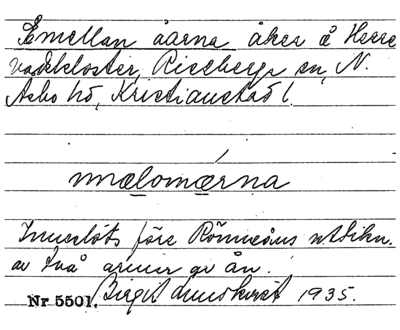 Emellan åarna, åker å Herre
vadskloster, Riseberga sn, N.
Åsbo hd, Kristianstad l.
mælomǽrna
före Rönneåns
av två armar av ån.
Nr 5501. Birgit Lundkvist 1935.